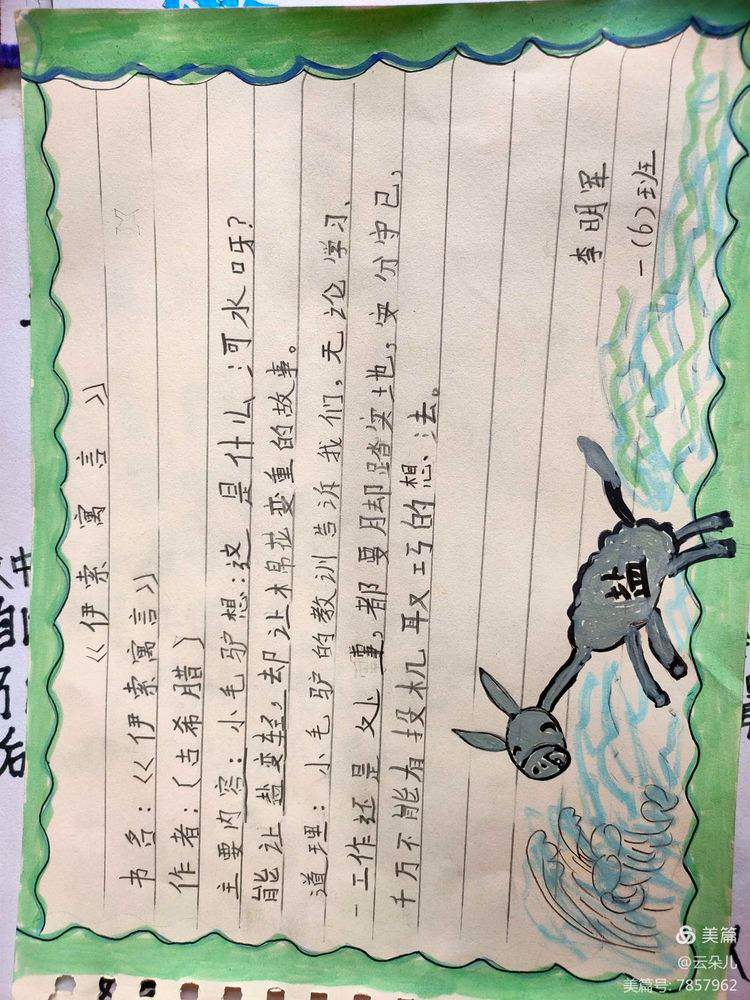 《伊索寓言》
书名：《伊索寓言》
作者：（古希腊）
主要内容：小毛驴想：这是什么河水呀？
能让盐变轻，却让棉花变重的故事。
道理：小毛驴的教训告诉我们，无论学习、
工作还是处事，都要脚踏实地，安分守己，
千万不能有投机取巧的想法。
李明军
一（6）班
盐
美篇
@云朵儿
美篇号: 7857962